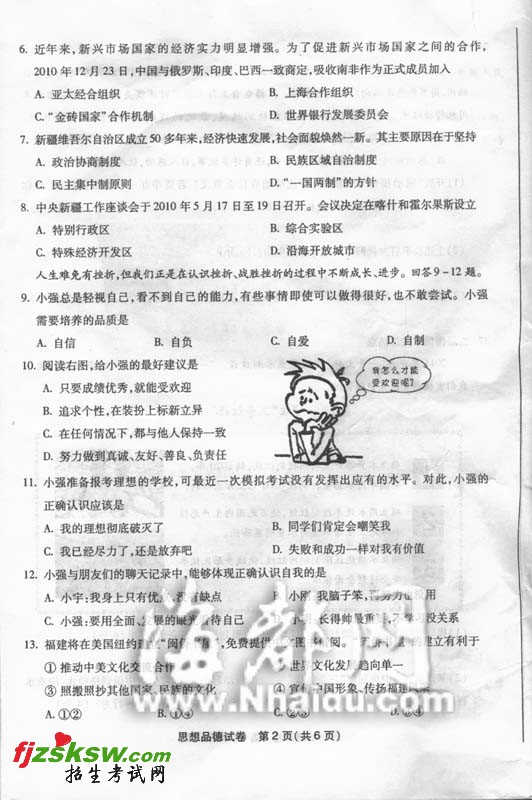 6. 近年来,新兴市场国家的经济实力明显增强。为了促进新兴市场国家之间的合作,
2010年12月23日,中国与俄罗斯、印度、巴西一致商定,吸收南非作为正式成员加入
A. 亚太经合组织 B. 上海合作组织
C. “金砖国家”合作机制 D. 世界银行发展委员会
7. 新疆维吾尔自治区成立50多年来,经济快速发展,社会面貌焕然一新。其主要原因在于坚持
A. 政治协商制度 B. 民族区域自治制度
C. 民主集中制原则 D. “一国两制”的方针
8. 中央新疆工作座谈会于2010年5月17日至19日召开。会议决定在喀什和霍尔果斯设立
A. 特别行政区 B. 综合实验区
C. 特殊经济开发区 D. 沿海开放城市
人生难免有挫折,但我们正是在认识挫折、战胜挫折的过程中不断成长、进步。回答9-12题。
9. 小强总是轻视自己,看不到自己的能力,有些事情即使可以做得很好,也不敢尝试。小强
需要培养的品质是
A. 自信 B. 自负 C. 自爱 D. 自制
10. 阅读右图,给小强的最好建议是
A. 只要成绩优秀,就能受欢迎
B. 追求个性,在装扮上标新立异
C. 在任何情况下,都与他人保持一致
D. 努力做到真诚、友好、善良、负责任
我怎么才能
受欢迎呢?
11. 小强准备报考理想的学校,可最近一次模拟考试没有发挥出应有的水平。对此,小强的
正确认识应该是
A. 我的理想彻底破灭了 B. 同学们肯定会嘲笑我
C. 我已经尽力了,还是放弃吧 D. 失败和成功一样对我有价值
12. 小强与朋友们的聊天记录中,能够体现正确认识自我的是
A. 小宇:我身上只有优点,没有缺点 B. 小刚:我脑子笨,再努力也没用
C. 小强:要用全面、发展的眼光看待自己 D. 小明:长得帅最重要,不学习没关系
13. 福建将在美国纽约建立“闽侨书屋”,免费提供中文图书借阅。“闽侨书屋”的建立有利于
① 推动中美文化交流合作 ② 世界文化发展趋向单一
③ 照搬照抄其他国家、民族的文化 ④ 宣传中国形象、传扬福建风采
A. ①② B. ①④ C. ②③ D. ③④
海都网
www.Nhaidu.com
思想品德试卷 第2页(共6页)
fjzsksw.com
招生考试网